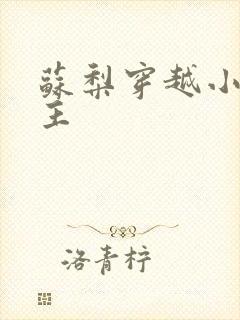 蘇梨穿越小
王
洛青柠